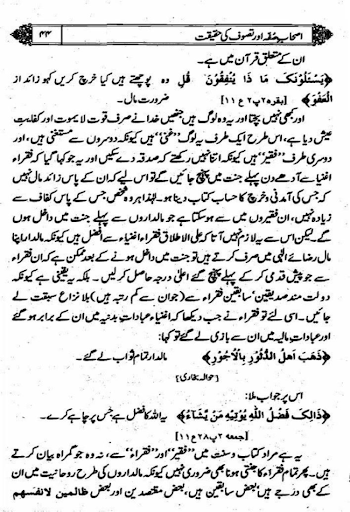 اصحاب صفہ اور تصوف کی حقیقت ۴۴
ان کے متعلق قرآن میں ہے۔
﴿يَسْئَلُوْنَكَ مَا ذَا يُنْفِقُوْنَ قُلِ وہ پوچھتے ہیں کیا خرچ کریں کہو زائد از
الْعَفْوَ﴾ [بقرہ ۲ پ ۲ ع ۱۱] ضرورت مال۔
اور بھی نہیں بچتا اور یہ وہ لوگ ہیں جنھیں خدا نے صرف قوت لایموت اور کفایت
عیش دیا ہے، اس طرح ایک طرف یہ لوگ ’’غنی‘‘ ہیں کیونکہ دوسروں سے مستغنی ہیں، اور
دوسری طرف ’’فقیر‘‘ ہیں کیونکہ اتنا نہیں رکھتے کہ صدقہ دے سکیں اور یہ جو کہا گیا کہ فقراء
اغنیاء سے آدھے دن پہلے جنت میں پہنچ جائیں گے تو اس لیے کہ ان کے پاس زائد مال نہیں
جس کی آمدنی و خرچ کا حساب کتاب دینا ہو۔ لہٰذا ہر وہ شخص جس کے پاس کفاف سے
زیادہ نہیں، ان فقیروں میں سے ہو سکتا ہے جو مالداروں سے پہلے جنت میں داخل ہوں
گے۔ لیکن اس سے یہ لازم نہیں آتا کہ علی الاطلاق فقراء اغنیاء سے افضل ہیں کیونکہ مالدار اپنا
مال رضائے الٰہی میں صرف کرتے ہیں، جنت میں داخل ہونے کے بعد ممکن ہے کہ ان فقراء
سے جو پیش قدمی کر کے پہلے پہنچ گئے اعلیٰ درجہ حاصل کر لیں۔ بلکہ یہ یقینی ہے کیونکہ
دولت مند صدیقین، سابقین فقراء سے (جو ان سے کم رتبہ ہیں) بلا نزاع سبقت لے
جائیں گے۔ اسی لئے تو فقراء نے جب دیکھا کہ اغنیاء عبادات بدنیہ میں ان کے برابر ہو گئے
اور عبادات مالیہ میں ان سے بازی لے گئے تو کہا:
﴿ذَهَبَ اَهْلُ الدُّثُوْرِ بِالْاُجُوْرِ﴾ مالدار تمام ثواب لے گئے۔
(حوالہ بخاری)
اس پر جواب ملا:
﴿ذَالِكَ فَضْلُ اللّٰهِ يُؤْتِيْهِ مَنْ يَّشَاءُ﴾ یہ اللہ کا فضل ہے جس پر چاہے کرے۔
[جمعہ ۲ پ ۲۸ ع ۱۱]
یہ ہے مراد کتاب و سنت میں ’’فقیر‘‘ اور ’’فقراء‘‘ سے، نہ وہ جو گمراہ بیان کرتے
ہیں۔ پھر تمام فقراء کا جنتی ہونا بھی ضروری نہیں کیونکہ مالداروں کی طرح روحانیت میں ان
کے بھی درجے ہیں، بعض سابقین ہیں، بعض مقتصدین اور بعض ظالمين لانفسهم